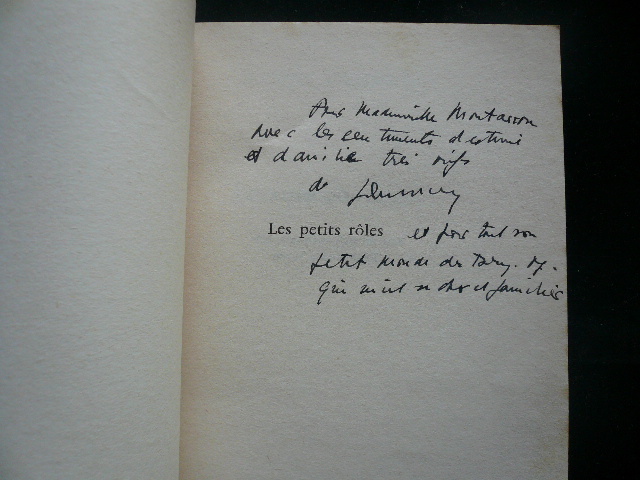 Pour Mademoiselle Montasson
avec les sentiments d'estime
et d'amitié très vifs
de
Les petits rôles et pour tout son
petit monde de
qui m'est si cher et familier